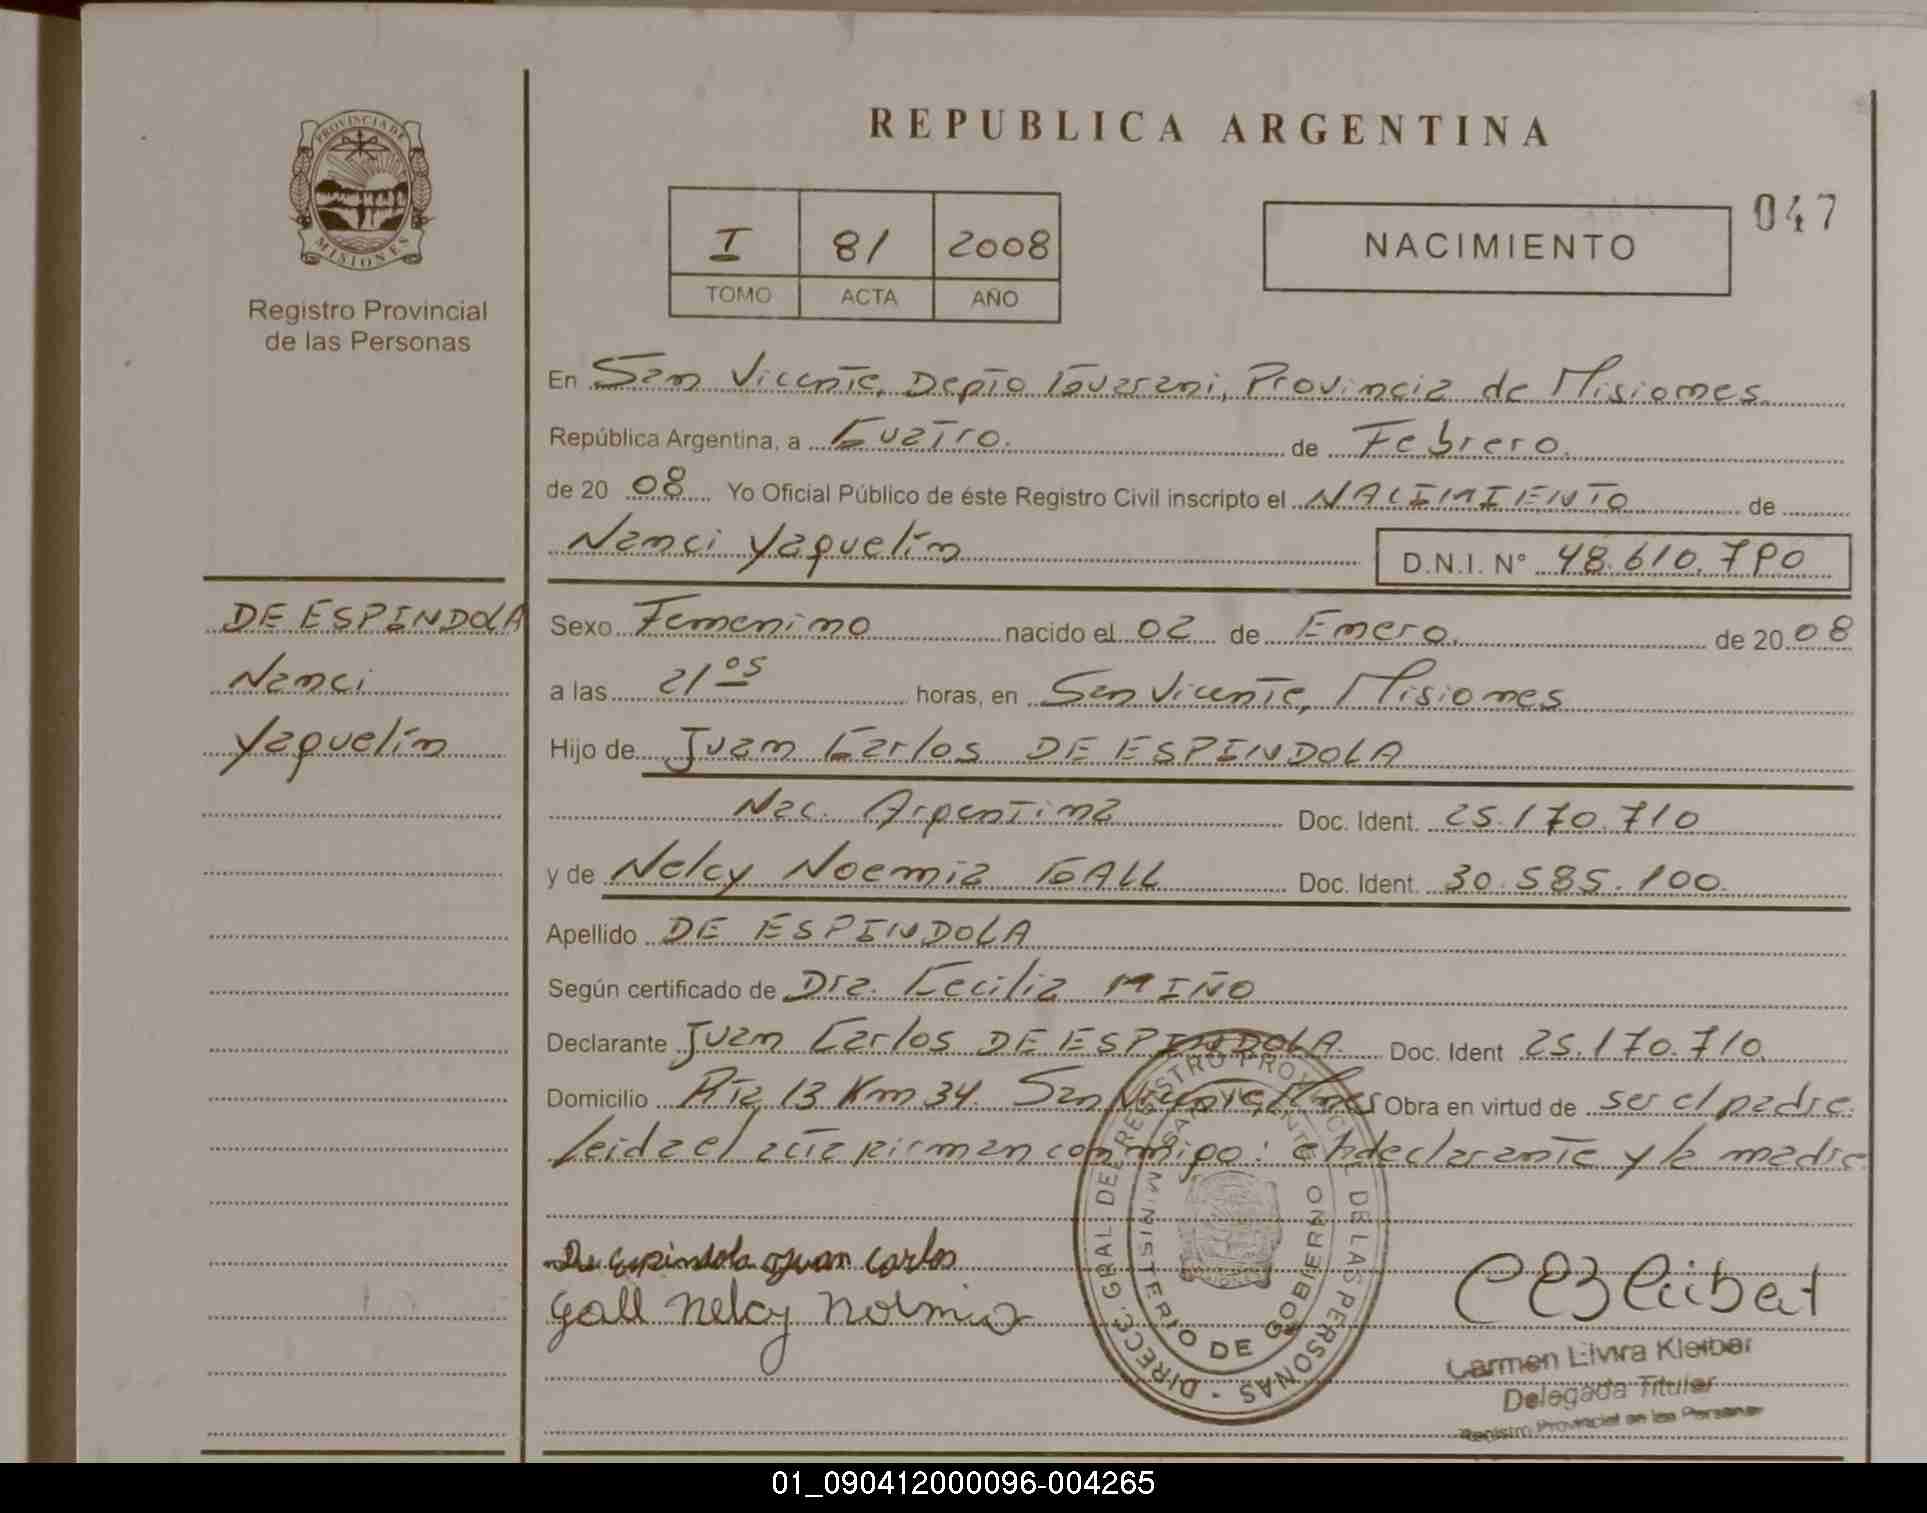 PROVINCIA DE
MISIONES
Registro Provincial
de las Personas
REPUBLICA ARGENTINA
I 81 2008
TOMO ACTA AÑO
NACIMIENTO
047
En San Vicente, Depto Guarani, Provincia de Misiones
República Argentina, a Cuatro. de Febrero.
de 20 08 Yo Oficial Público de éste Registro Civil inscripto el NACIMIENTO de
Nanci Yaquelín D.N.I. N° 48.610.790
DE ESPINDOLA
Nanci
Yaquelín
Sexo Femenino nacido el 02 de Enero. de 20 08
a las 21 05 horas, en San Vicente, Misiones
Hijo de Juan Carlos DE ESPINDOLA
Nac. Argentina Doc. Ident. 25.170.710
y de Nelcy Noemia GALL Doc. Ident. 30.585.100
Apellido DE ESPINDOLA
Según certificado de Dra. Cecilia MIÑO
Declarante Juan Carlos DE ESPINDOLA Doc. Ident 25.170.710
Domicilio Rta 13 Km 34 San Vicente, Mnes Obra en virtud de ser el padre.
Leida el acta firman conmigo: el declarante y la madre
De Espindola Juan Carlos
Gall Nelcy Noemia
DIRECC. GRAL. DE REGISTRO PROVINCIAL DE LAS PERSONAS
MINISTERIO DE GOBIERNO
SAN VICENTE
Carmen Elvira Kleibar
Delegada Titular
Registro Provincial de las Personas
01_090412000096-004265